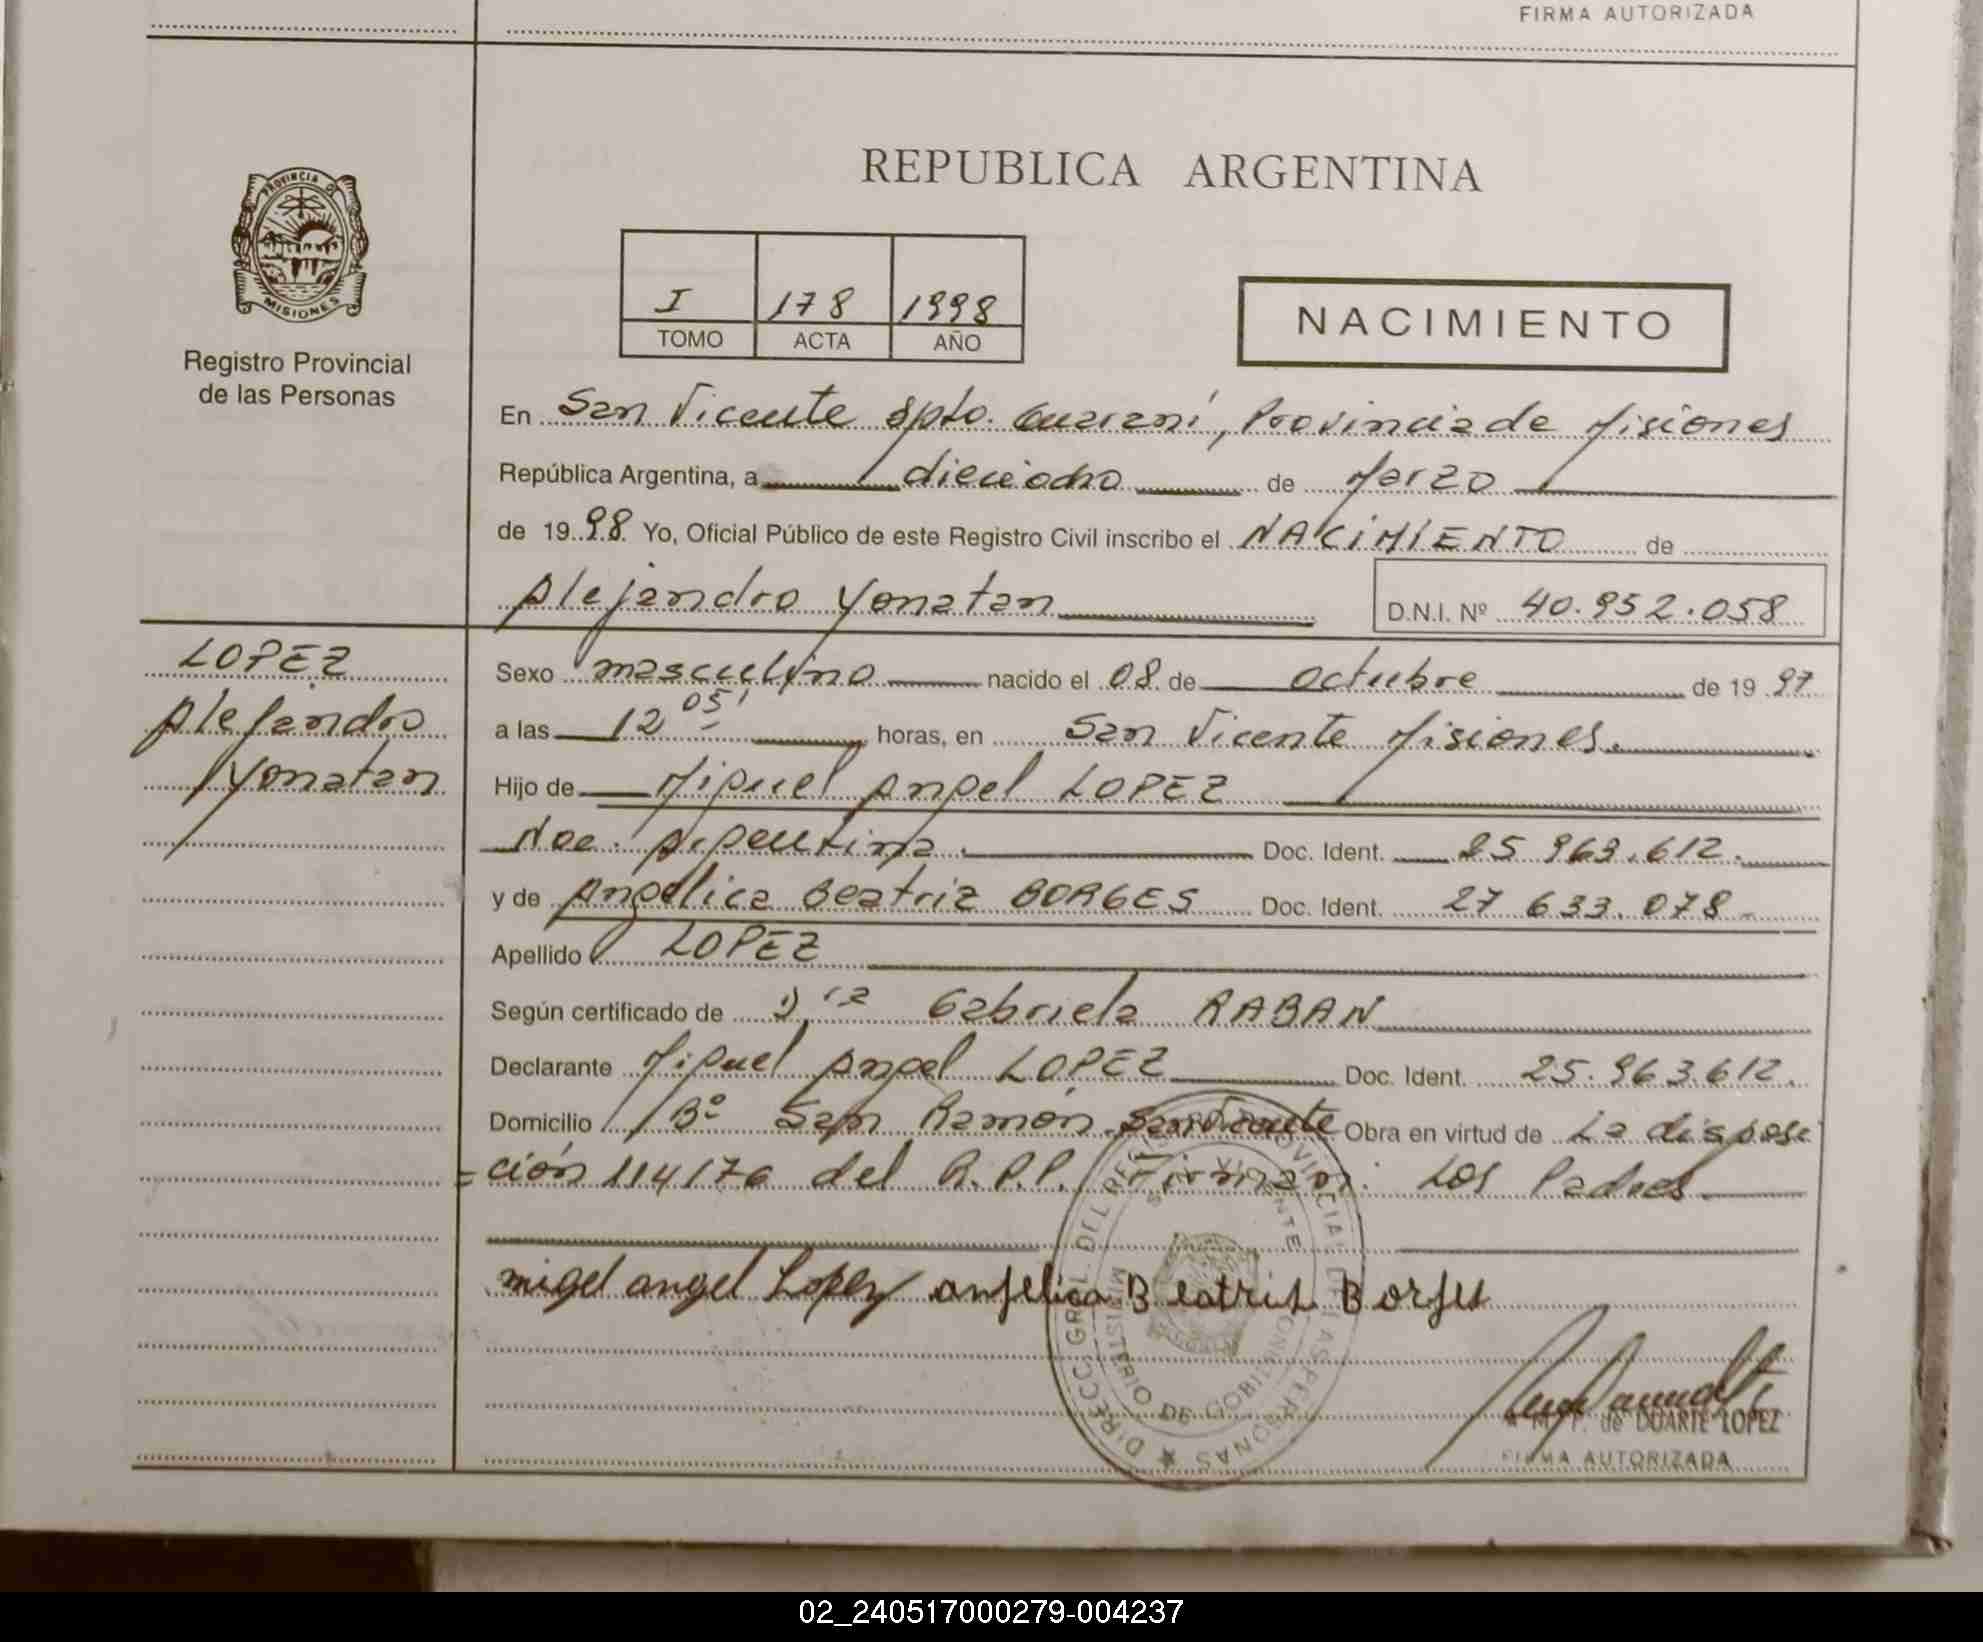 FIRMA AUTORIZADA
REPUBLICA ARGENTINA
PROVINCIA DE
MISIONES
Registro Provincial
de las Personas
I 178 1998
TOMO ACTA AÑO
NACIMIENTO
En San Vicente Dpto. Guaraní, Provincia de Misiones
República Argentina, a dieciocho de Marzo
de 1998 Yo, Oficial Público de este Registro Civil inscribo el NACIMIENTO de
Alejandro Yonatan D.N.I. Nº 40.952.058
LOPEZ
Alejandro
Yonatan
Sexo masculino nacido el 08 de octubre de 1997
a las 12 05' horas, en San Vicente Misiones.
Hijo de Miguel Angel LOPEZ
Nac. Argentina. Doc. Ident. 25 963.612.
y de Angélica Beatriz BORGES Doc. Ident. 27 633.078
Apellido LOPEZ
Según certificado de Dra Gabriela RABAN
Declarante Miguel Angel LOPEZ Doc. Ident. 25.963.612.
Domicilio Bº San Ramón. San Vicente Obra en virtud de La disposi
=ción 114/76 del R.P.P. Firman: Los Padres
migel angel Lopez anjelica Beatris Borjes
DIRECC. GRAL. DEL REG. PROVINCIAL DE LAS PERSONAS
SAN VICENTE
MISIONES
MINISTERIO DE GOBIERNO
M. P. de DUARTE LOPEZ
FIRMA AUTORIZADA
02_240517000279-004237